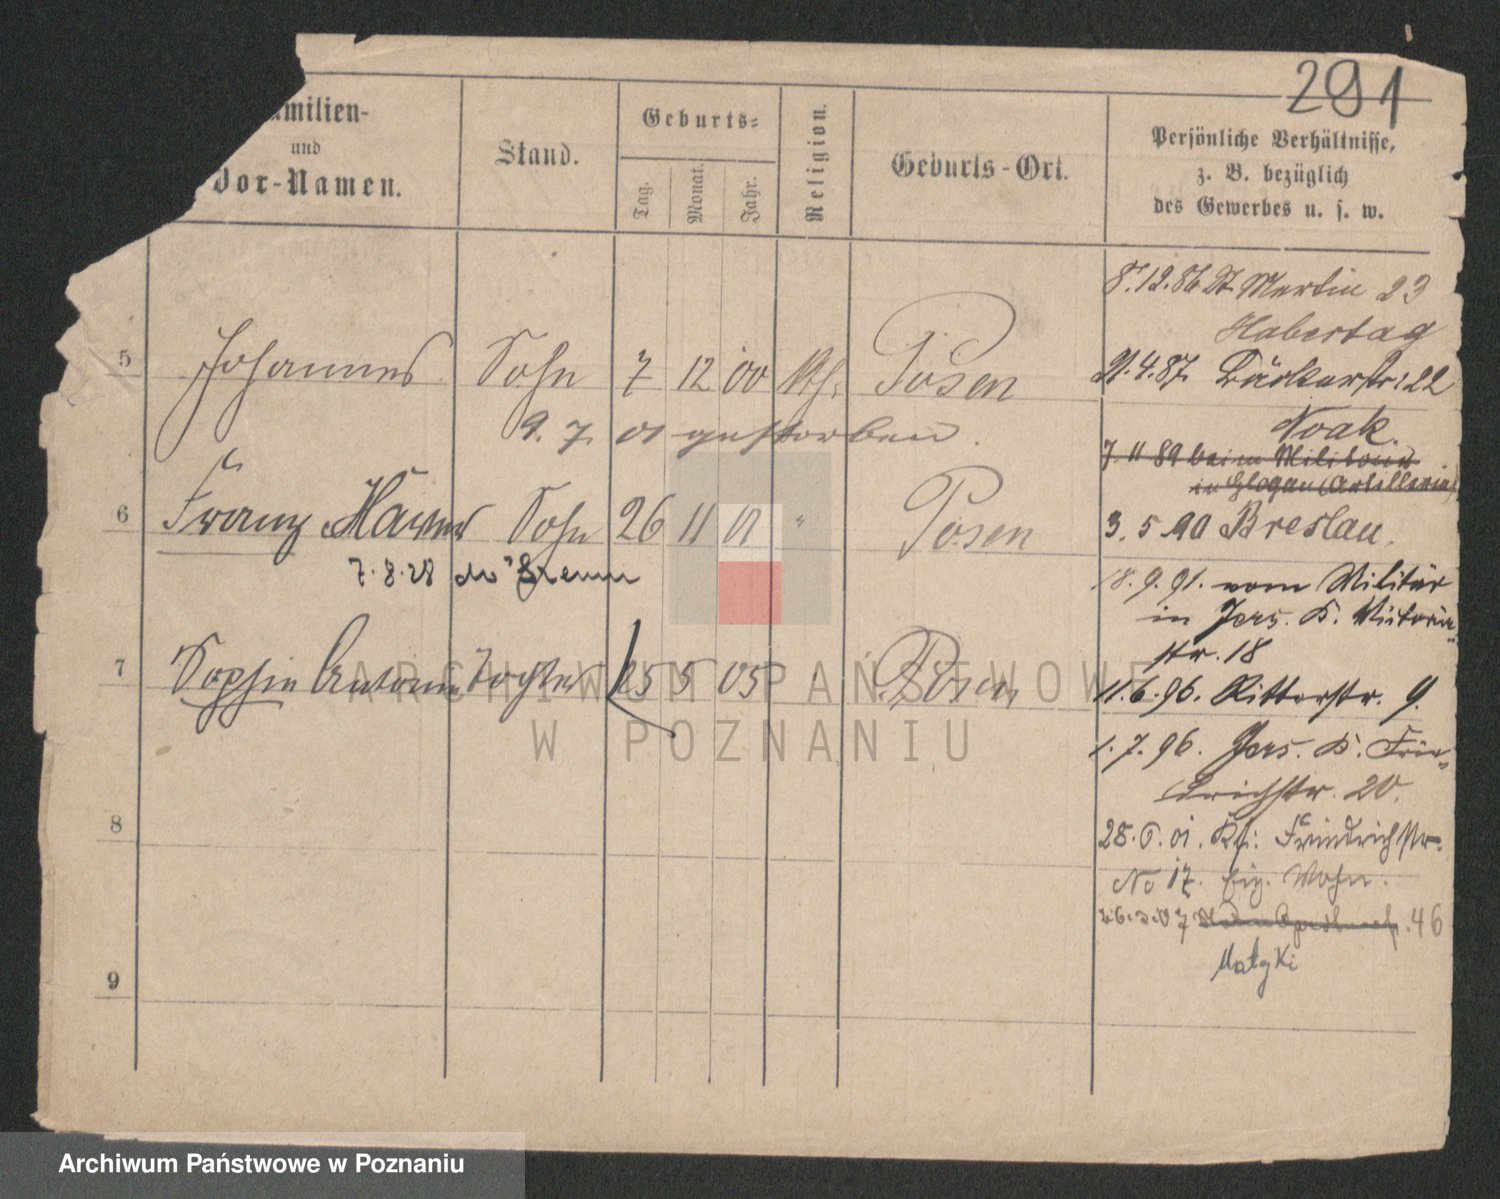 291
Familien-
und
Vor-Namen.
Stand.
Geburts-
Tag.
Monat.
Jahr.
Religion.
Geburts-Ort.
Persönliche Verhältnisse,
z. B. bezüglich
des Gewerbes u. s. w.
5 Johannes Sohn 7 12 00 Kth. Posen
9. 7. 01 gestorben.
6 Franz Sohn 26 11 01 " Posen
7.8.28 do
7 Sophie Antonie Tochter 25 5 05 Posen
8
9
8.12.86 St. Martin 23
Habertag
21.4.87. Bäckerstr. 22
Noak.
7. 11 89 beim Militair
in Glogau (Artillerie)
3. 5. 90 Breslau.
18. 9. 91. vom Militär
in Jers. K. Victoria-
str. 18
11.6.96. Ritterstr. 9.
1. 7. 96. Jers. K. Frie-
drichstr. 20.
28. 6. 01. Kfr. Friedrichstr.
No 17. Eig. Wohn.
26.3.07 46
Matyki
ARCHIWUM PAŃSTWOWE
W POZNANIU
Archiwum Państwowe w Poznaniu